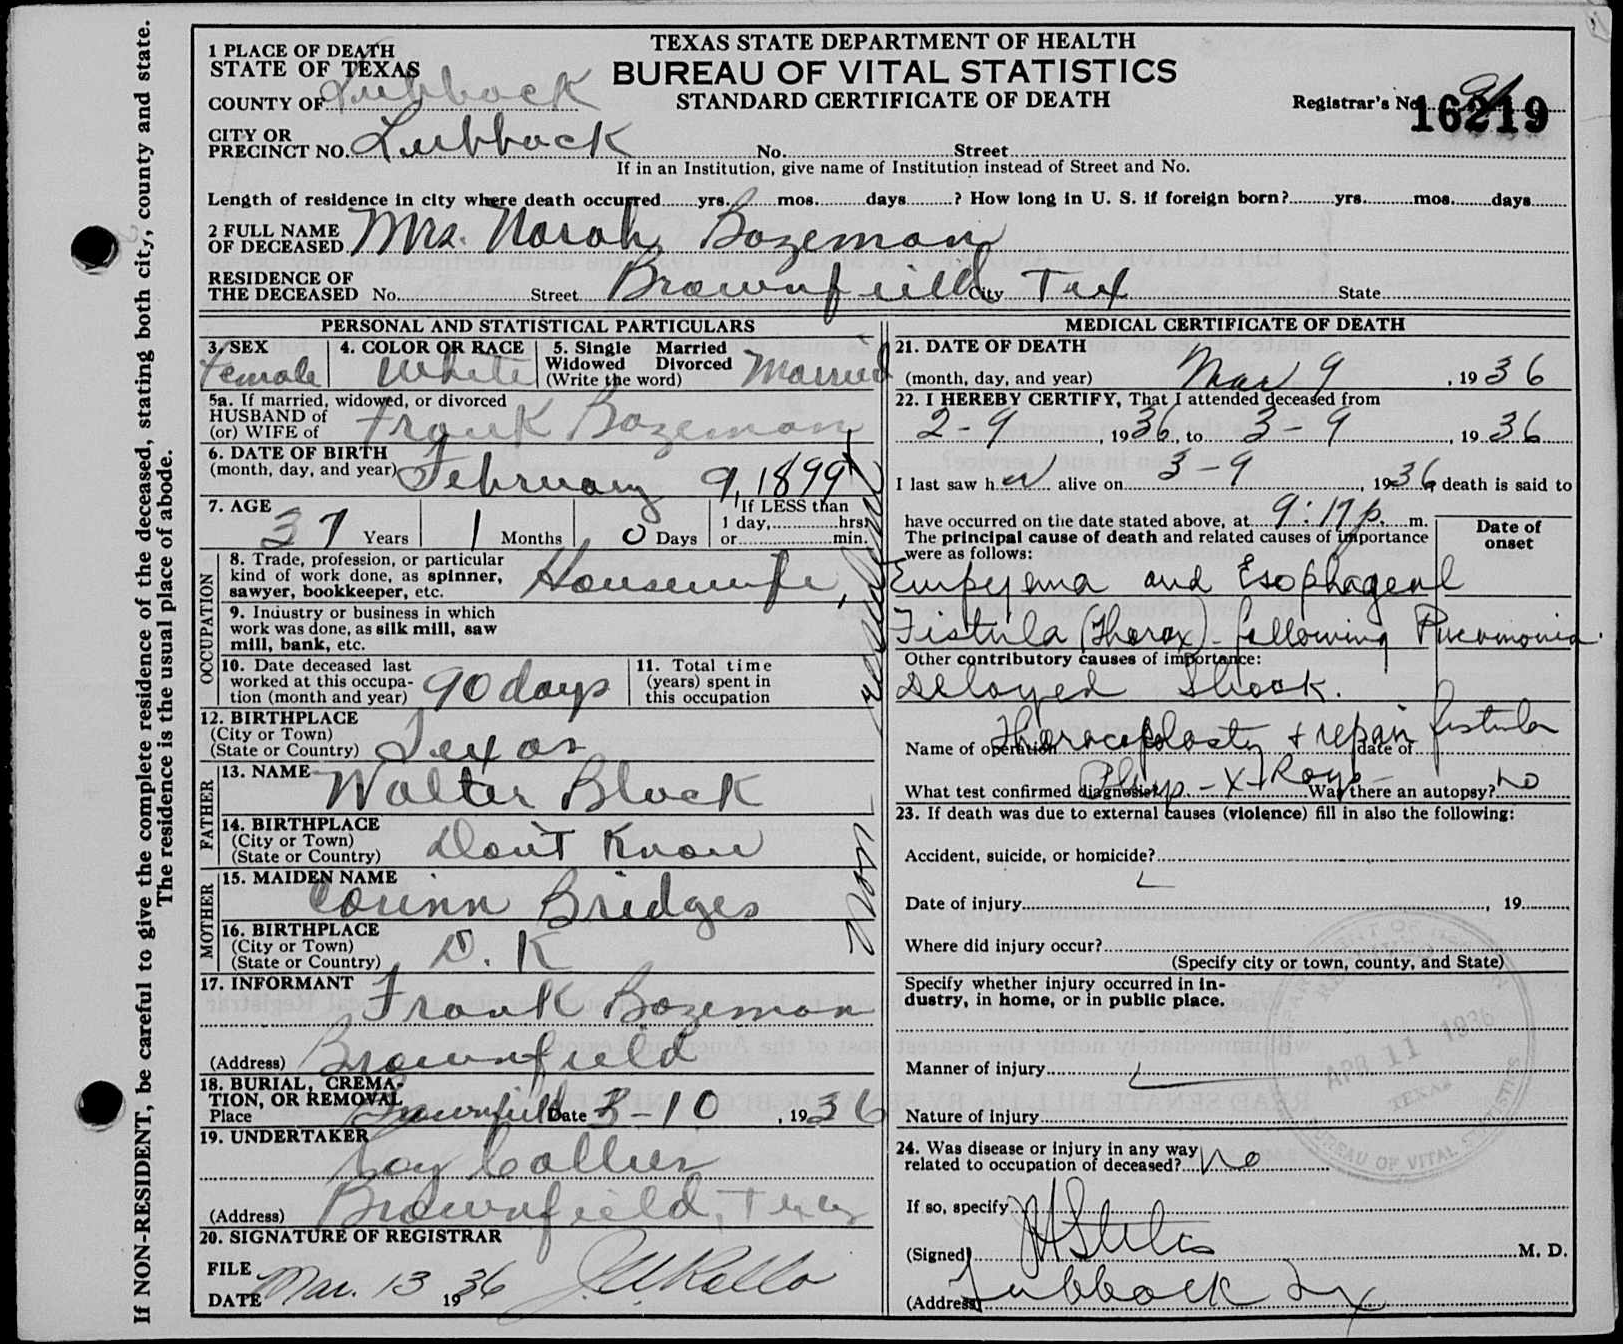 If NON-RESIDENT, be careful to give the complete residence of the deceased, stating both city, county and state.
The residence is the usual place of abode.
TEXAS STATE DEPARTMENT OF HEALTH
BUREAU OF VITAL STATISTICS
STANDARD CERTIFICATE OF DEATH
1 PLACE OF DEATH
STATE OF TEXAS
COUNTY OF Lubbock
Registrar's No. 16219
CITY OR
PRECINCT NO. Lubbock No. Street
If in an Institution, give name of Institution instead of Street and No.
Length of residence in city where death occurred yrs. mos. days ? How long in U. S. if foreign born? yrs. mos. days
2 FULL NAME
OF DECEASED Mrs. Norah Bozeman
RESIDENCE OF
THE DECEASED No. Street Brownfield City Tex State
PERSONAL AND STATISTICAL PARTICULARS
3. SEX
Female
4. COLOR OR RACE
White
5. Single Married
Widowed Divorced
(Write the word) Married
5a. If married, widowed, or divorced
HUSBAND of
(or) WIFE of Frank Bozeman
6. DATE OF BIRTH
(month, day, and year) February 9, 1899
7. AGE
37 Years 1 Months 0 Days
If LESS than
1 day, hrs.
or min.
OCCUPATION
8. Trade, profession, or particular
kind of work done, as spinner,
sawyer, bookkeeper, etc. Housewife
9. Industry or business in which
work was done, as silk mill, saw
mill, bank, etc.
10. Date deceased last
worked at this occupa-
tion (month and year) 90 days
11. Total time
(years) spent in
this occupation
12. BIRTHPLACE
(City or Town)
(State or Country) Texas
FATHER
13. NAME Walter Black
14. BIRTHPLACE
(City or Town)
(State or Country) Dont Know
MOTHER
15. MAIDEN NAME
Corinn Bridges
16. BIRTHPLACE
(City or Town)
(State or Country) D. K
Non resident
17. INFORMANT Frank Bozeman
(Address) Brownfield
18. BURIAL, CREMA-
TION, OR REMOVAL
Place Brownfield Date 3-10, 1936
19. UNDERTAKER
Roy Collier
(Address) Brownfield, Tex
20. SIGNATURE OF REGISTRAR
FILE
DATE Mar. 13 1936
MEDICAL CERTIFICATE OF DEATH
21. DATE OF DEATH
(month, day, and year) Mar 9, 1936
22. I HEREBY CERTIFY, That I attended deceased from
2-9, 1936, to 3-9, 1936
I last saw her alive on 3-9, 1936, death is said to
have occurred on the date stated above, at 9:17 p. m.
The principal cause of death and related causes of importance
were as follows:
Date of
onset
Empyema and Esophageal
Fistula (Thorax) - following Pneumonia.
Other contributory causes of importance:
Delayed Shock.
Name of operation Thoracoplasty & repair fistula date of
What test confirmed diagnosis? Phys - X-Rays - Was there an autopsy? no
23. If death was due to external causes (violence) fill in also the following:
Accident, suicide, or homicide?
Date of injury , 19
Where did injury occur?
(Specify city or town, county, and State)
Specify whether injury occurred in in-
dustry, in home, or in public place.
Manner of injury
Nature of injury
APR 11 1936
TEXAS
BUREAU OF VITAL STATISTICS
24. Was disease or injury in any way
related to occupation of deceased? no
If so, specify
(Signed) M. D.
(Address) Lubbock Tx